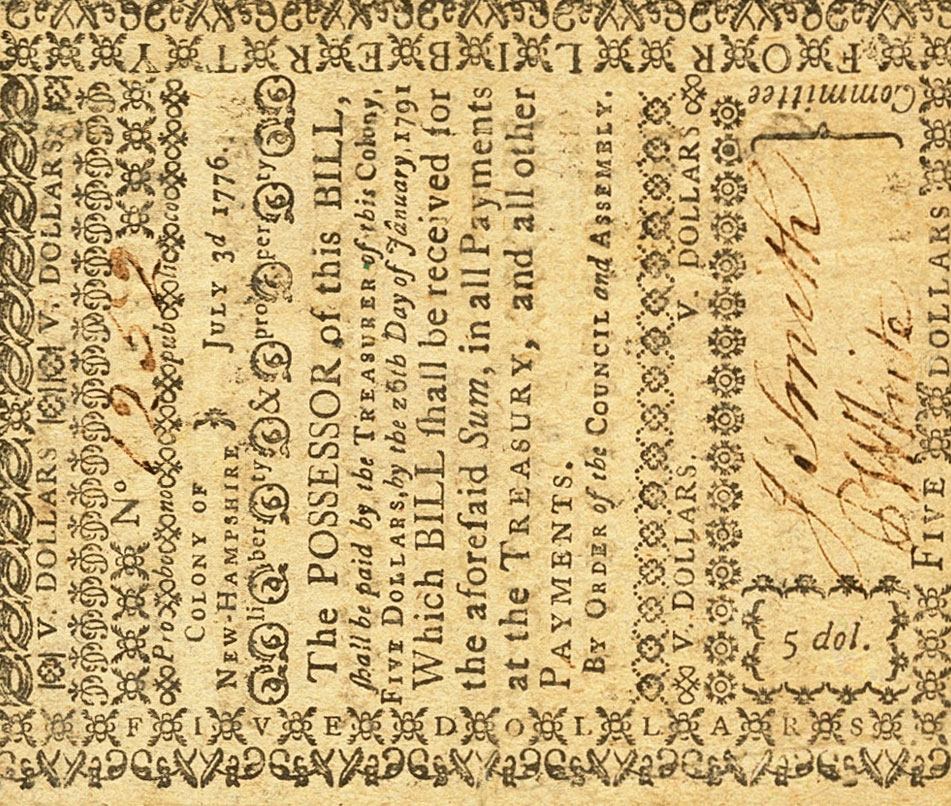 V. DOLLARS V. DOLLARS
No 252
Pro bono publico
COLONY OF
NEW-HAMPSHIRE } JULY 3d 1776.
liberty & property
The POSSESSOR of this BILL,
ſhall be paid by the TREASURER of this Colony,
FIVE DOLLARS, by the 26th Day of January, 1791
Which BILL ſhall be received for
the aforeſaid Sum, in all Payments
at the TREASURY, and all other
PAYMENTS.
By ORDER of the COUNCIL and ASSEMBLY.
V. DOLLARS. V. DOLLARS
5 dol.
J Smith
P White
} Committee
FIVE DOLLARS
FIVE DOLLARS
FOR LIBERTY